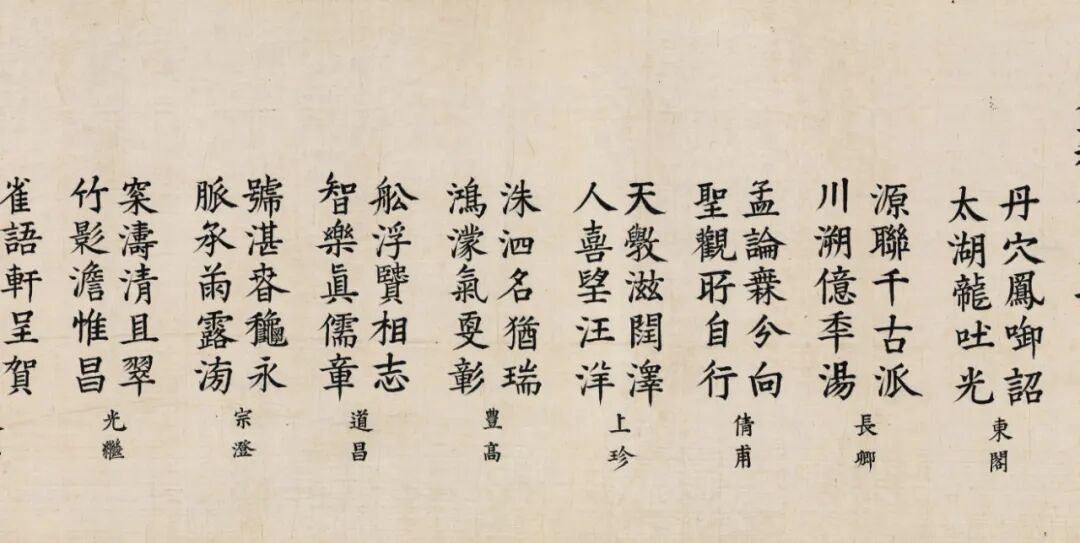 丹穴鳳啣詔
太湖龍吐光
東閣
源聯千古派
川溯億秊湯
長卿
孟論兮向
聖觀所自行
倩甫
天滋澤
人喜朢汪洋
上珍
洙泗名猶瑞
鴻濛氣彰
豐高
舩浮贒相志
智樂眞儒章
道昌
號湛昚龝永
脈承雨露
宗澄
濤清且翠
竹影澹惟昌
光繼
雀語軒呈賀